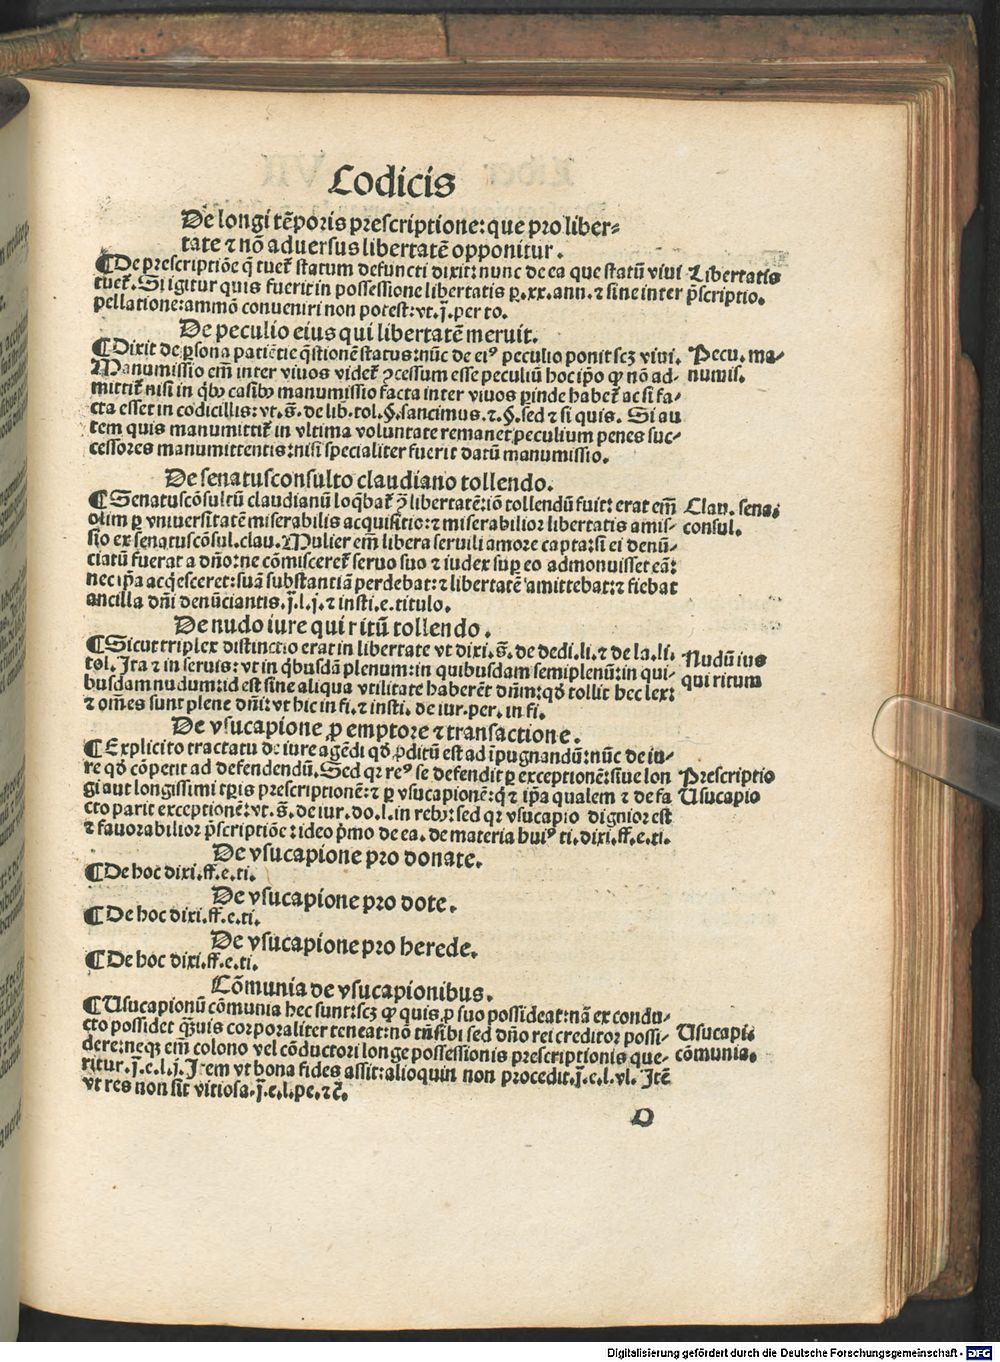 Codicis
De longi tẽporis prescriptione: que pro liber⸗
tate ⁊ nõ adversus libertatẽ opponitur.
¶ De prescriptiõe q̃ tuet̃ statum defuncti dixit: nunc de ea que statũ vivi
Libertatis
tuet̃. Si igitur quis fuerit in possessione libertatis ꝑ .xx. ann. ⁊ sine inter
p̃scriptio.
pellatione: ammõ conveniri non potest: vt .j̃. per to.
De peculio eius qui libertatẽ meruit.
¶ Dixit de ꝑsona patiẽtie q̃stionẽ status: nũc de eiꝰ peculio ponit scꝫ vivi.
Pecu. ma⸗
Manumissio em̃ inter vivos videt̃ ꝯcessum esse peculiũ hoc ip̃o ꝙ nõ ad⸗
numis.
mittit̃ nisi in q̃bꝰ casibꝰ manumissio facta inter vivos ꝑinde habet̃ ac si fa⸗
cta esset in codicillis: vt .s̃. de lib. tol. §. sancimus. ⁊. §. sed ⁊ si quis. Si au
tem quis manumittit̃ in vltima voluntate remanet peculium penes suc⸗
cessores manumittentis: nisi specialiter fuerit datũ manumissio.
De senatusconsulto claudiano tollendo.
¶ Senatuscõsultũ claudianũ loq̃bat̃ ꝯ̃ libertatẽ: iõ tollendũ fuit: erat em̃
Clau. sena.
olim ꝑ vniuersitatẽ miserabilis acquisitio: ⁊ miserabilior libertatis amis⸗
consul.
sio ex senatuscõsul. clau. Mulier em̃ libera servili amore capta: si ei denũ⸗
ciatũ fuerat a dño: ne cõmisceret̃ servo suo ⁊ iudex suꝑ eo admonuisset eã:
nec ip̃a acq̃esceret: suã substantiã perdebat: ⁊ libertatẽ amittebat: ⁊ fiebat
ancilla dñi denũciantis. j̃. l. j. ⁊ insti. e. titulo.
De nudo iure quiritũ tollendo.
¶ Sicut triplex distinctio erat in libertate vt dixi. s̃. de dedi. li. ⁊ de la. li.
Nudũ ius
tol. Ita ⁊ in servis: vt in q̃busdã plenum: in quibusdam semiplenũ: in qui⸗
quiritum
busdam nudum: id est sine aliqua vtilitate haberẽt dñm: qð tollit hec lex:
⁊ om̃es sunt plene dñi: vt hic in fi. ⁊ insti. de iur. per. in fi.
De vsucapione ꝓ emptore ⁊ transactione.
¶ Explicito tractatu de iure agẽdi qð ꝓditũ est ad ĩpugnandũ: nũc de iu⸗
re qð cõpetit ad defendendũ. Sed qꝛ reꝰ se defendit ꝑ exceptionẽ: sive lon
Prescriptio
gi aut longissimi tꝑis prescriptionẽ: ⁊ ꝑ vsucapionẽ: q̃ ⁊ ip̃a qualem ⁊ de fa
Usucapio
cto parit exceptionẽ: vt .s̃. de iur. do. l. in rebꝰ: sed qꝛ vsucapio dignior est
⁊ favorabilior p̃scriptiõe: ideo p̃mo de ea. de materia huiꝰ ti. dixi. ff. e. ti.
De vsucapione pro donate.
¶ De hoc dixi. ff. e. ti.
De vsucapione pro dote.
¶ De hoc dixi. ff. e. ti.
De vsucapione pro herede.
¶ De hoc dixi. ff. e. ti.
Cõmunia de vsucapionibus.
¶ Usucapionũ cõmunia hec sunt: scꝫ ꝙ quis ꝓ suo possideat: nã ex condu⸗
cto possidet q̃ꝫuis corporaliter teneat: nõ tñ sibi sed dño rei creditor possi⸗
Usucapi.
dere: neqꝫ em̃ colono vel cõductori longe possessionis prescriptionis que⸗
cõmunia.
ritur. j̃. e. l. j. Item vt bona fides assit: alioquin non procedit. j̃. e. l. vl. Itẽ
vt res non sit vitiosa. j̃. e. l. pe. ⁊ c̃.
D
Digitalisierung gefördert durch die Deutsche Forschungsgemeinschaft - DFG